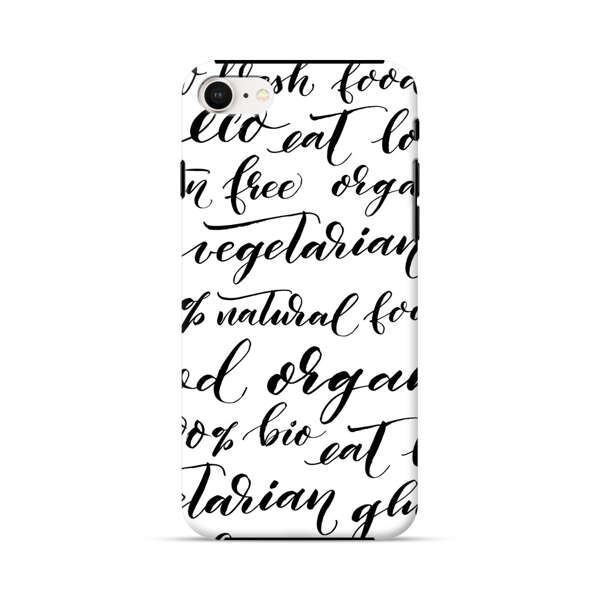 fresh food
eco eat lo
n free orga
vegetarian
% natural foo
od organ
00% bio eat l
etarian glu